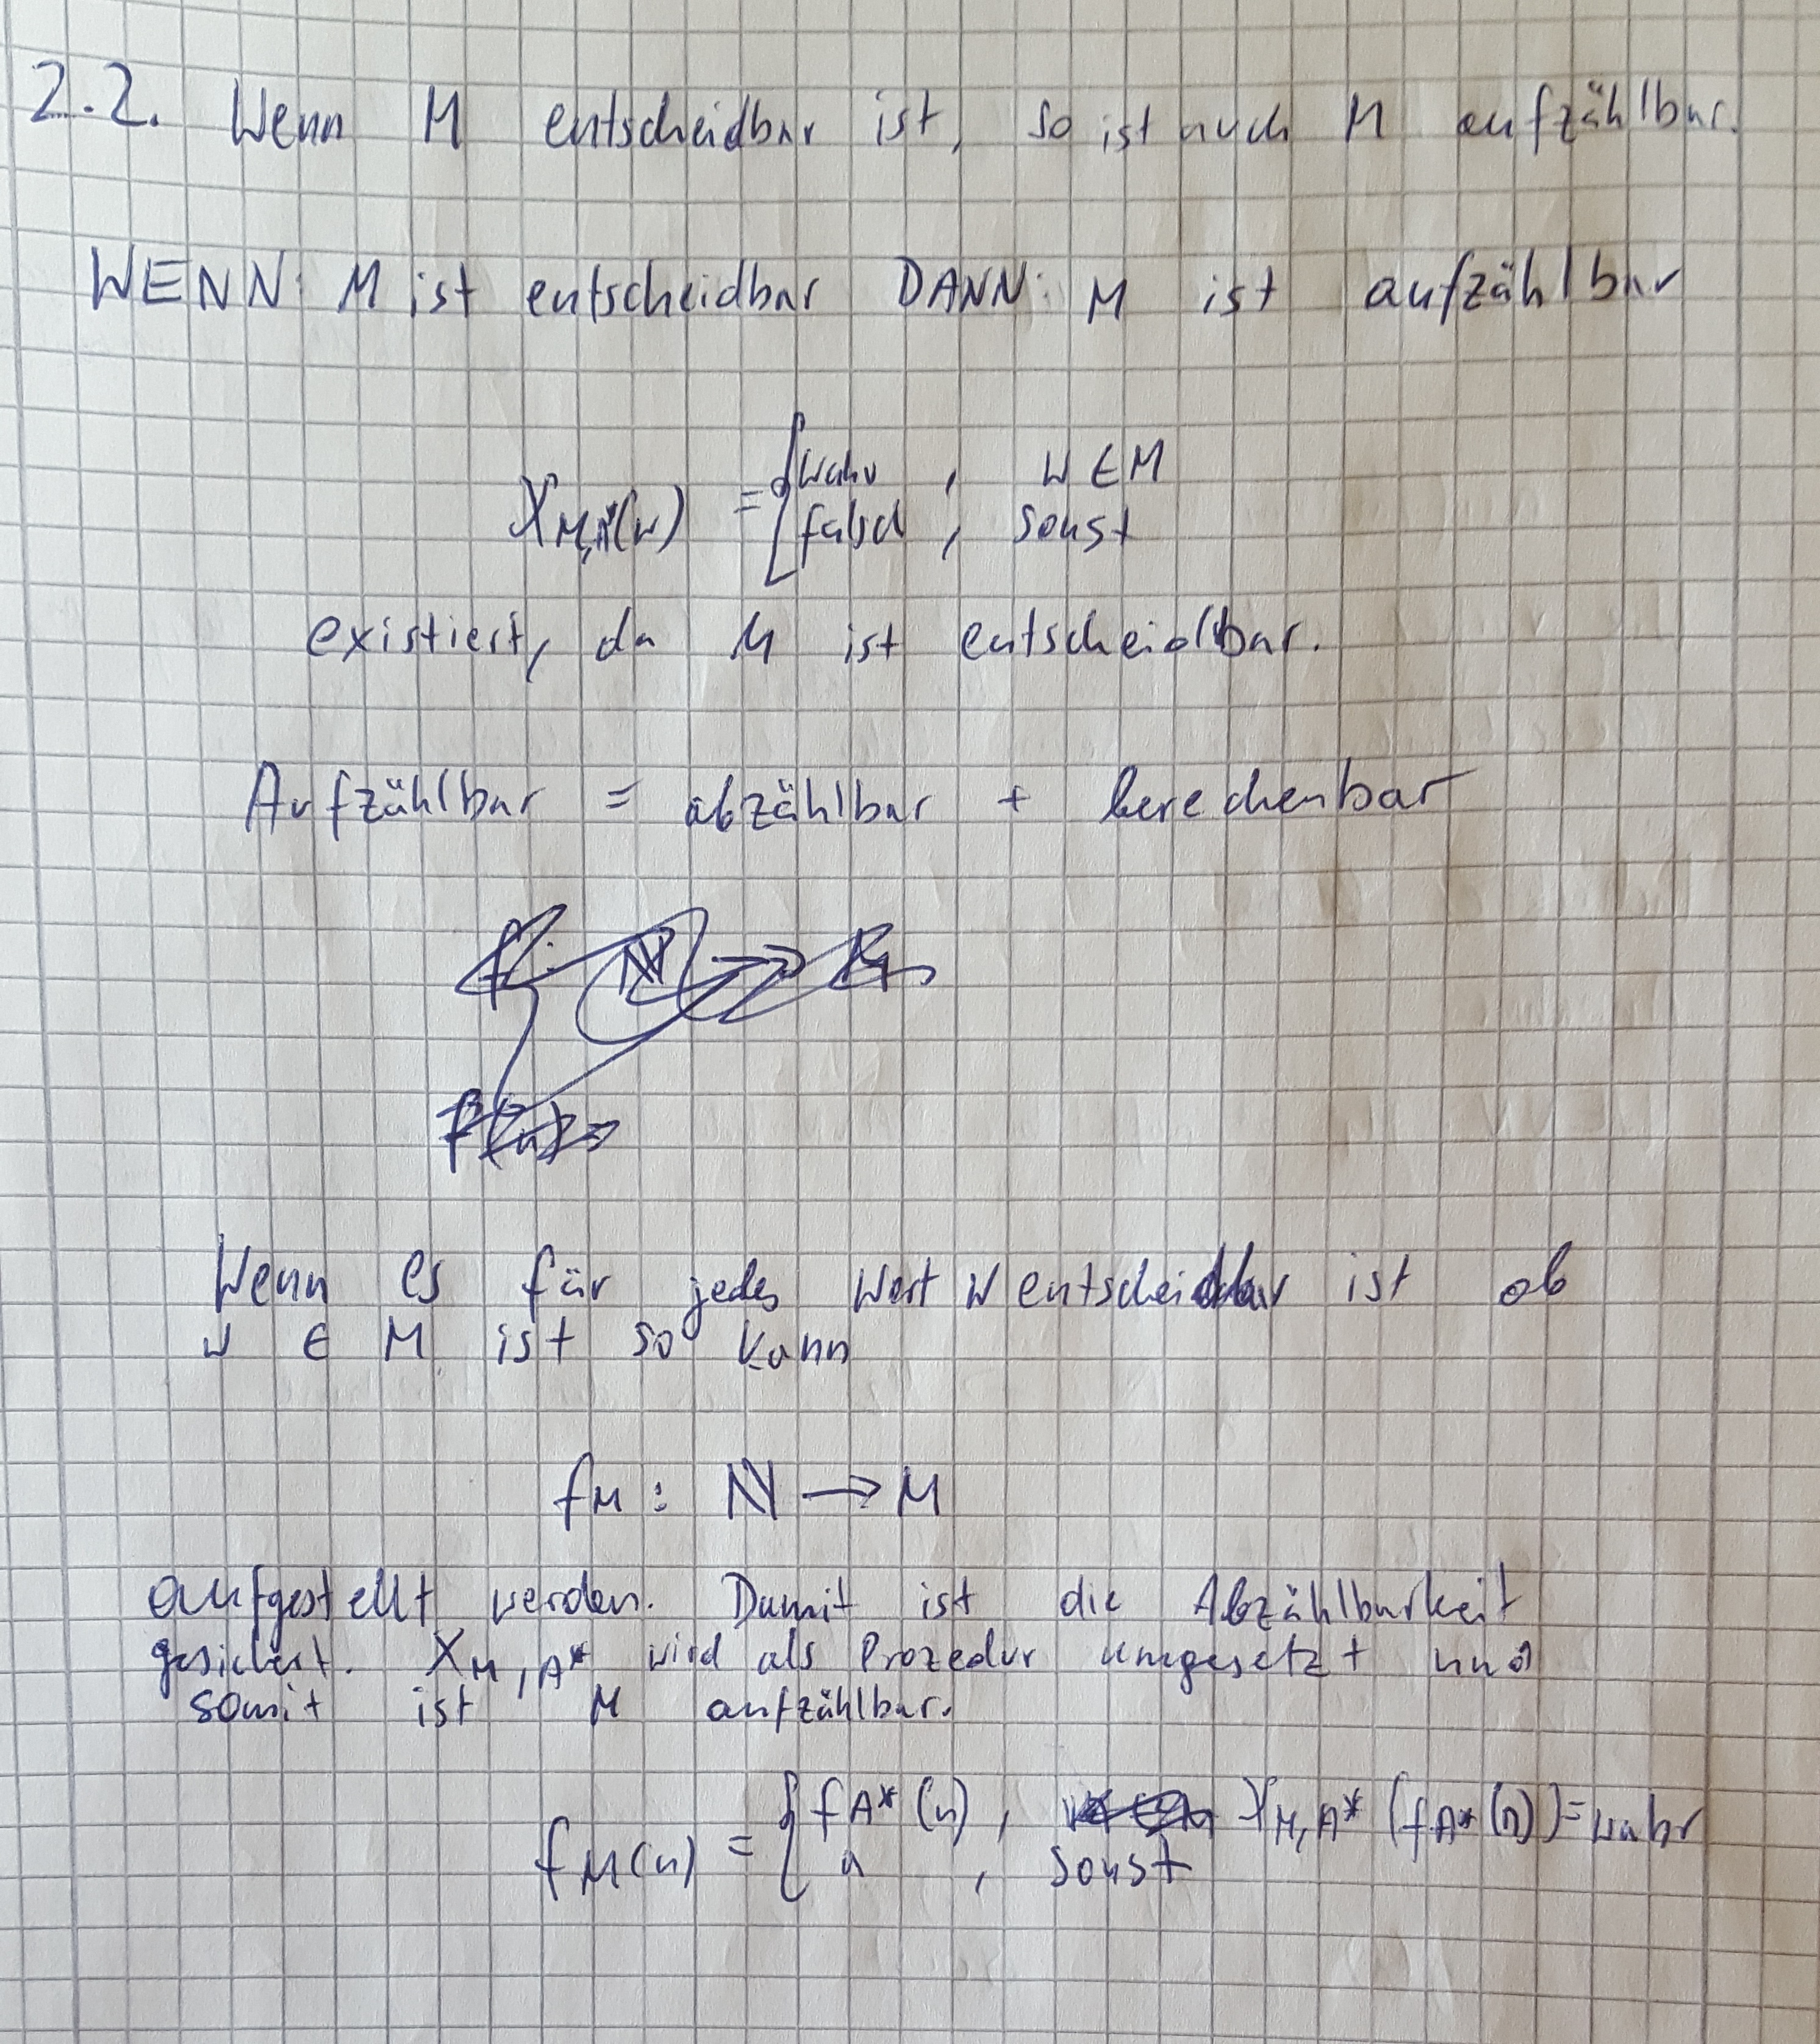 2.2. Wenn M entscheidbar ist, so ist auch M aufzählbar.
WENN: M ist entscheidbar DANN: M ist aufzählbar
χ_{M,A*}(w) = { wahr , w ∈ M
falsch , sonst
existiert, da M ist entscheidbar.
Aufzählbar = abzählbar + berechenbar
Wenn es für jedes Wort w entscheidbar ist ob
w ∈ M ist so kann
f_M : ℕ → M
aufgestellt werden. Damit ist die Abzählbarkeit
gesichert. χ_{M,A*} wird als Prozedur umgesetzt und
somit ist M aufzählbar.
f_M(n) = { f_{A*}(n) , χ_{M,A*}(f_{A*}(n)) = wahr
a , sonst